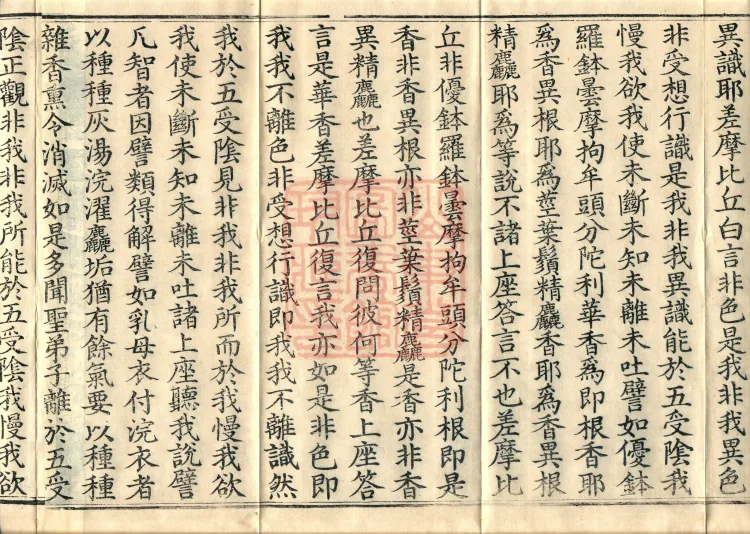 異識耶差摩比丘白言非色是我非我異色
非受想行識是我非我異識能於五受陰我
慢我欲我使未斷未知未離未吐譬如優鉢
羅鉢曇摩拘牟頭分陀利華香爲即根香耶
爲香異根耶爲莖葉鬚精麤香耶爲香異根
精麤耶爲等說不諸上座答言不也差摩比
丘非優鉢羅鉢曇摩拘牟頭分陀利根即是
香非香異根亦非莖葉鬚精麤是香亦非香
異精麤也差摩比丘復問彼何等香上座答
言是華香差摩比丘復言我亦如是非色即
我我不離色非受想行識即我我不離識然
我於五受陰見非我非我所而於我慢我欲
我使未斷未知未離未吐諸上座聽我說譬
凡智者因譬類得解譬如乳母衣付浣衣者
以種種灰湯浣濯麤垢猶有餘氣要以種種
雜香熏令消滅如是多聞聖弟子離於五受
陰正觀非我非我所能於五受陰我慢我欲